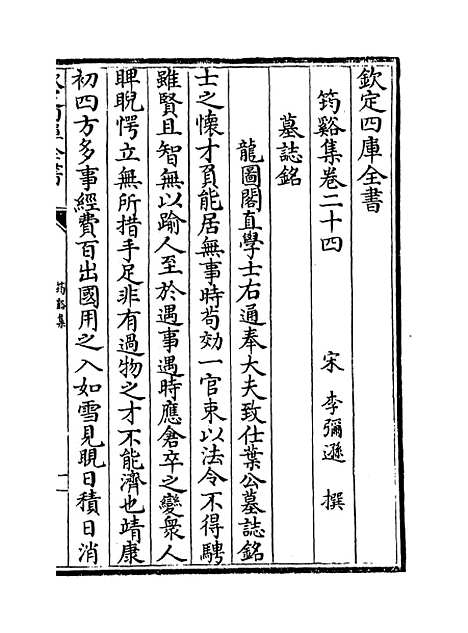 欽定四庫全書
筠谿集卷二十四
宋 李彌遜 撰
墓誌銘
龍圖閣直學士右通奉大夫致仕葉公墓誌銘
士之懷才負能居無事時苟効一官束以法令不得騁
雖賢且智無以踰人至於遇事遇時應倉卒之變衆人
睥睨愕立無所措手足非有過物之才不能濟也靖康
初四方多事經費百出國用之入如雪見晛日積日消
筠谿集